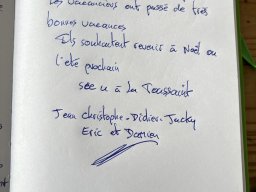 Les vacanciers ont passé de très
bonnes vacances
Ils souhaitent revenir à Noël ou
l'été prochain
see u à la Toussaint
Jean Christophe - Didier - Jacky
Eric et Damien